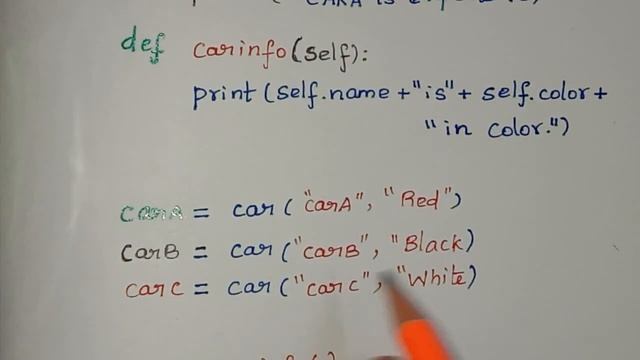 def carinfo(self):
print (self.name + "is" + self.color +
"in color.")
carA = car("carA", "Red")
carB = car("carB", "Black)
carC = car("carC", "White)